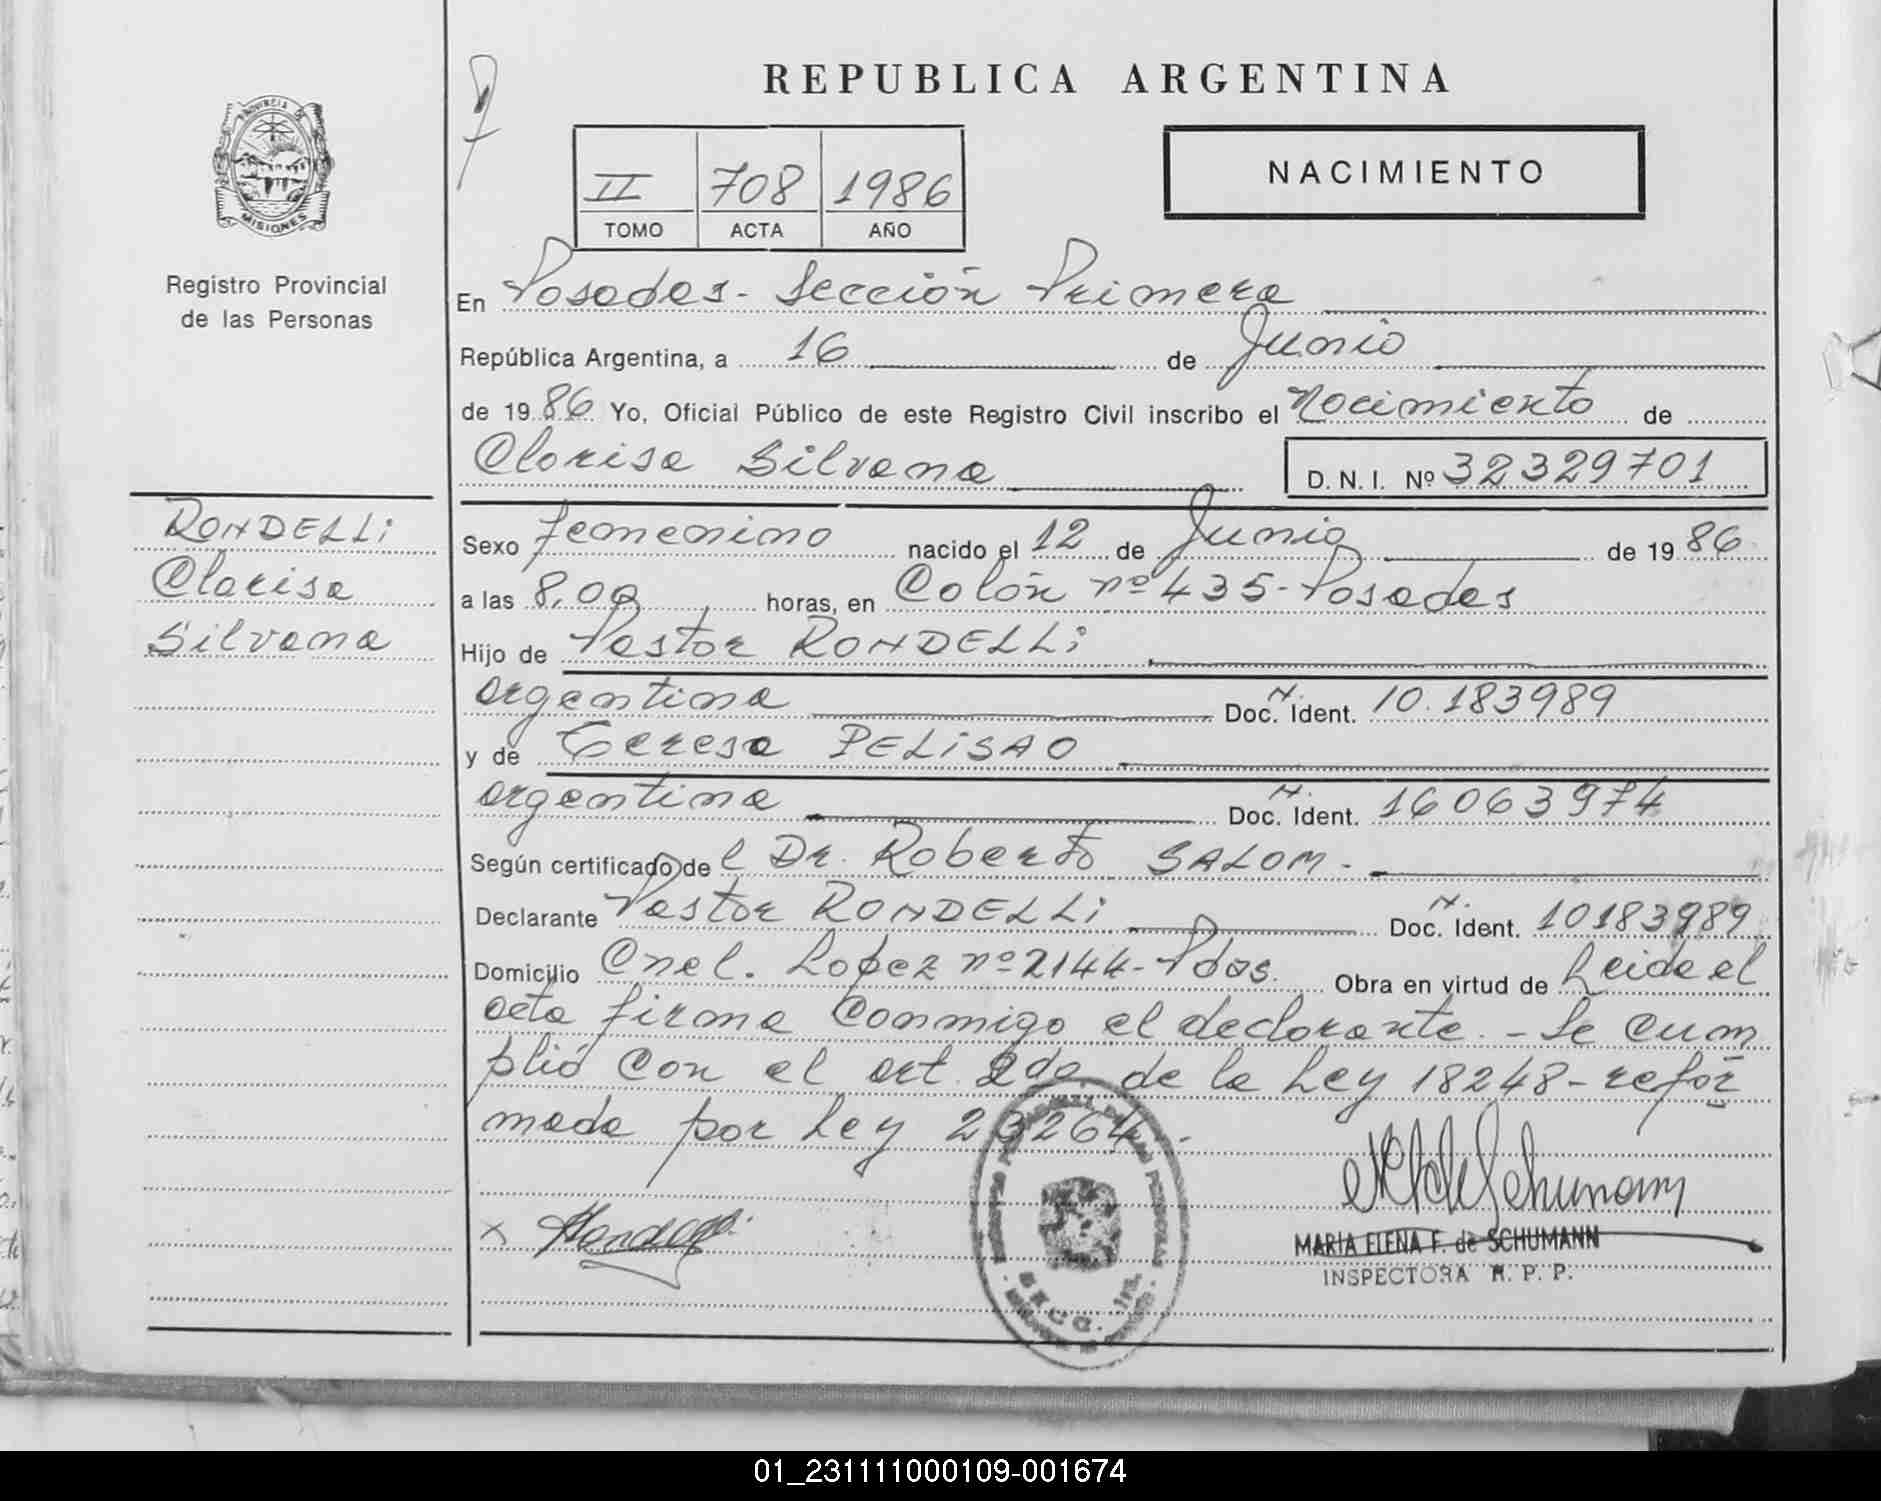 REPUBLICA ARGENTINA
PROVINCIA DE
MISIONES
Registro Provincial
de las Personas
II 708 1986
TOMO ACTA AÑO
NACIMIENTO
En Posadas - Sección Primera
República Argentina, a 16 de Junio
de 1986 Yo, Oficial Público de este Registro Civil inscribo el Nacimiento de
Clarisa Silvana D. N. I. Nº 32329701
RONDELLi
Clarisa
Silvana
Sexo femenino nacido el 12 de Junio de 1986
a las 8,00 horas, en Colón nº 435 - Posadas
Hijo de Pastor RONDELLi
argentina Doc. N. Ident. 10.183989
y de Teresa PELiSAO
argentina Doc. N. Ident. 16063974
Según certificado del Dr. Roberto SALOM.-
Declarante Pastor RONDELLi Doc. N. Ident. 10183989
Domicilio Cnel. Lopez nº 2144 - Pdas. Obra en virtud de Leida el
acta firma conmigo el declarante. - Se cum
plió con el art. 2do de la Ley 18248 - refor
mada por Ley 23264.
MARIA ELENA F. de SCHUMANN
INSPECTORA R. P. P.
01_231111000109-001674